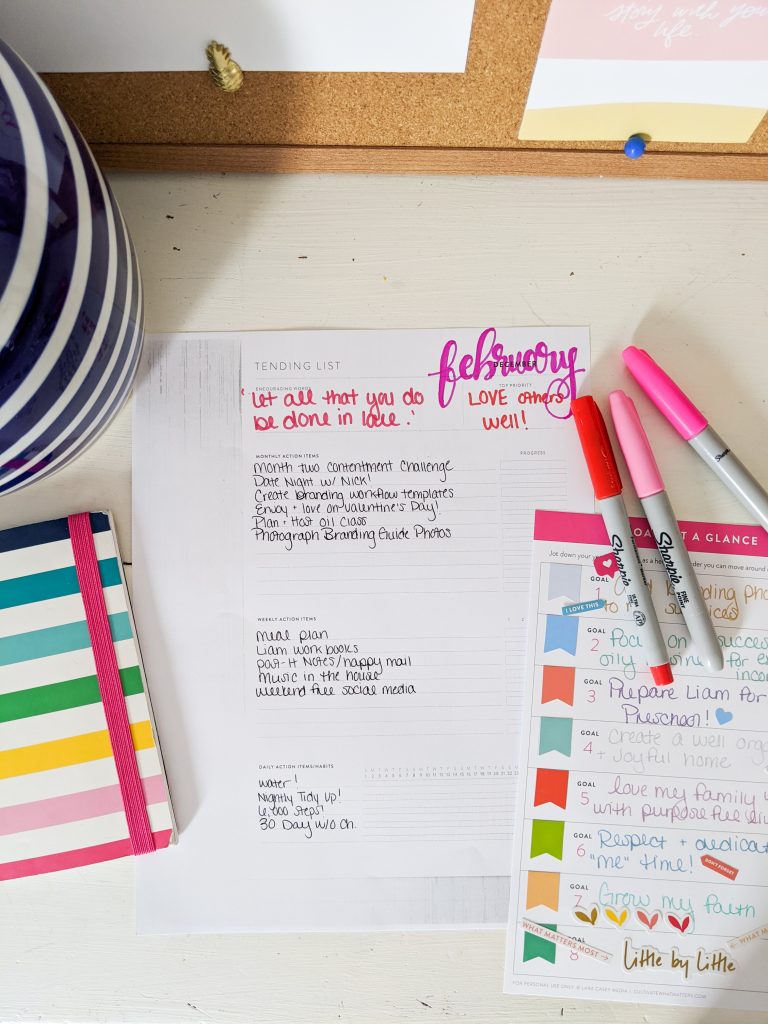 story with your
life.
TENDING LIST
february
DECEMBER
ENCOURAGING WORDS
TOP PRIORITY
'Let all that you do
be done in love.'
LOVE others
well!
MONTHLY ACTION ITEMS
PROGRESS
Month two contentment challenge
Date Night w/ Nick!
Create branding workflow templates
Enjoy + love on Valentine's Day!
Plan + Host oil class
Photograph Branding Guide Photos
WEEKLY ACTION ITEMS
Meal plan
Liam workbooks
Post-it Notes/happy mail
Music in the house
Weekend free social media
DAILY ACTION ITEMS/HABITS
S M T W T F S M T W T F S M T W T F S M T W
1 2 3 4 5 6 7 8 9 10 11 12 13 14 15 16 17 18 19 20 21 22
Water!
Nightly Tidy up!
6,000 Steps!
30 Day w/o Ch.
Sharpie
Sharpie
Sharpie
ULTRA FINE
FINE POINT
AT A GLANCE
Jot down your
as a
you can move around
GOAL
1
branding
I LOVE THIS
to
services
GOAL
2
on
success
oily
for
GOAL
3
Prepare Liam for
Preschool!
GOAL
4
Create a well
+ Joyful home
GOAL
5
love my family
with purpose free
GOAL
6
Respect +
"me" time!
DON'T FORGET
GOAL
7
Grow my faith
WHAT MATTERS MOST
WHAT
8
Little by Little
FOR PERSONAL USE ONLY © LARA CASEY MEDIA | CULTIVATEWHATMATTERS.COM